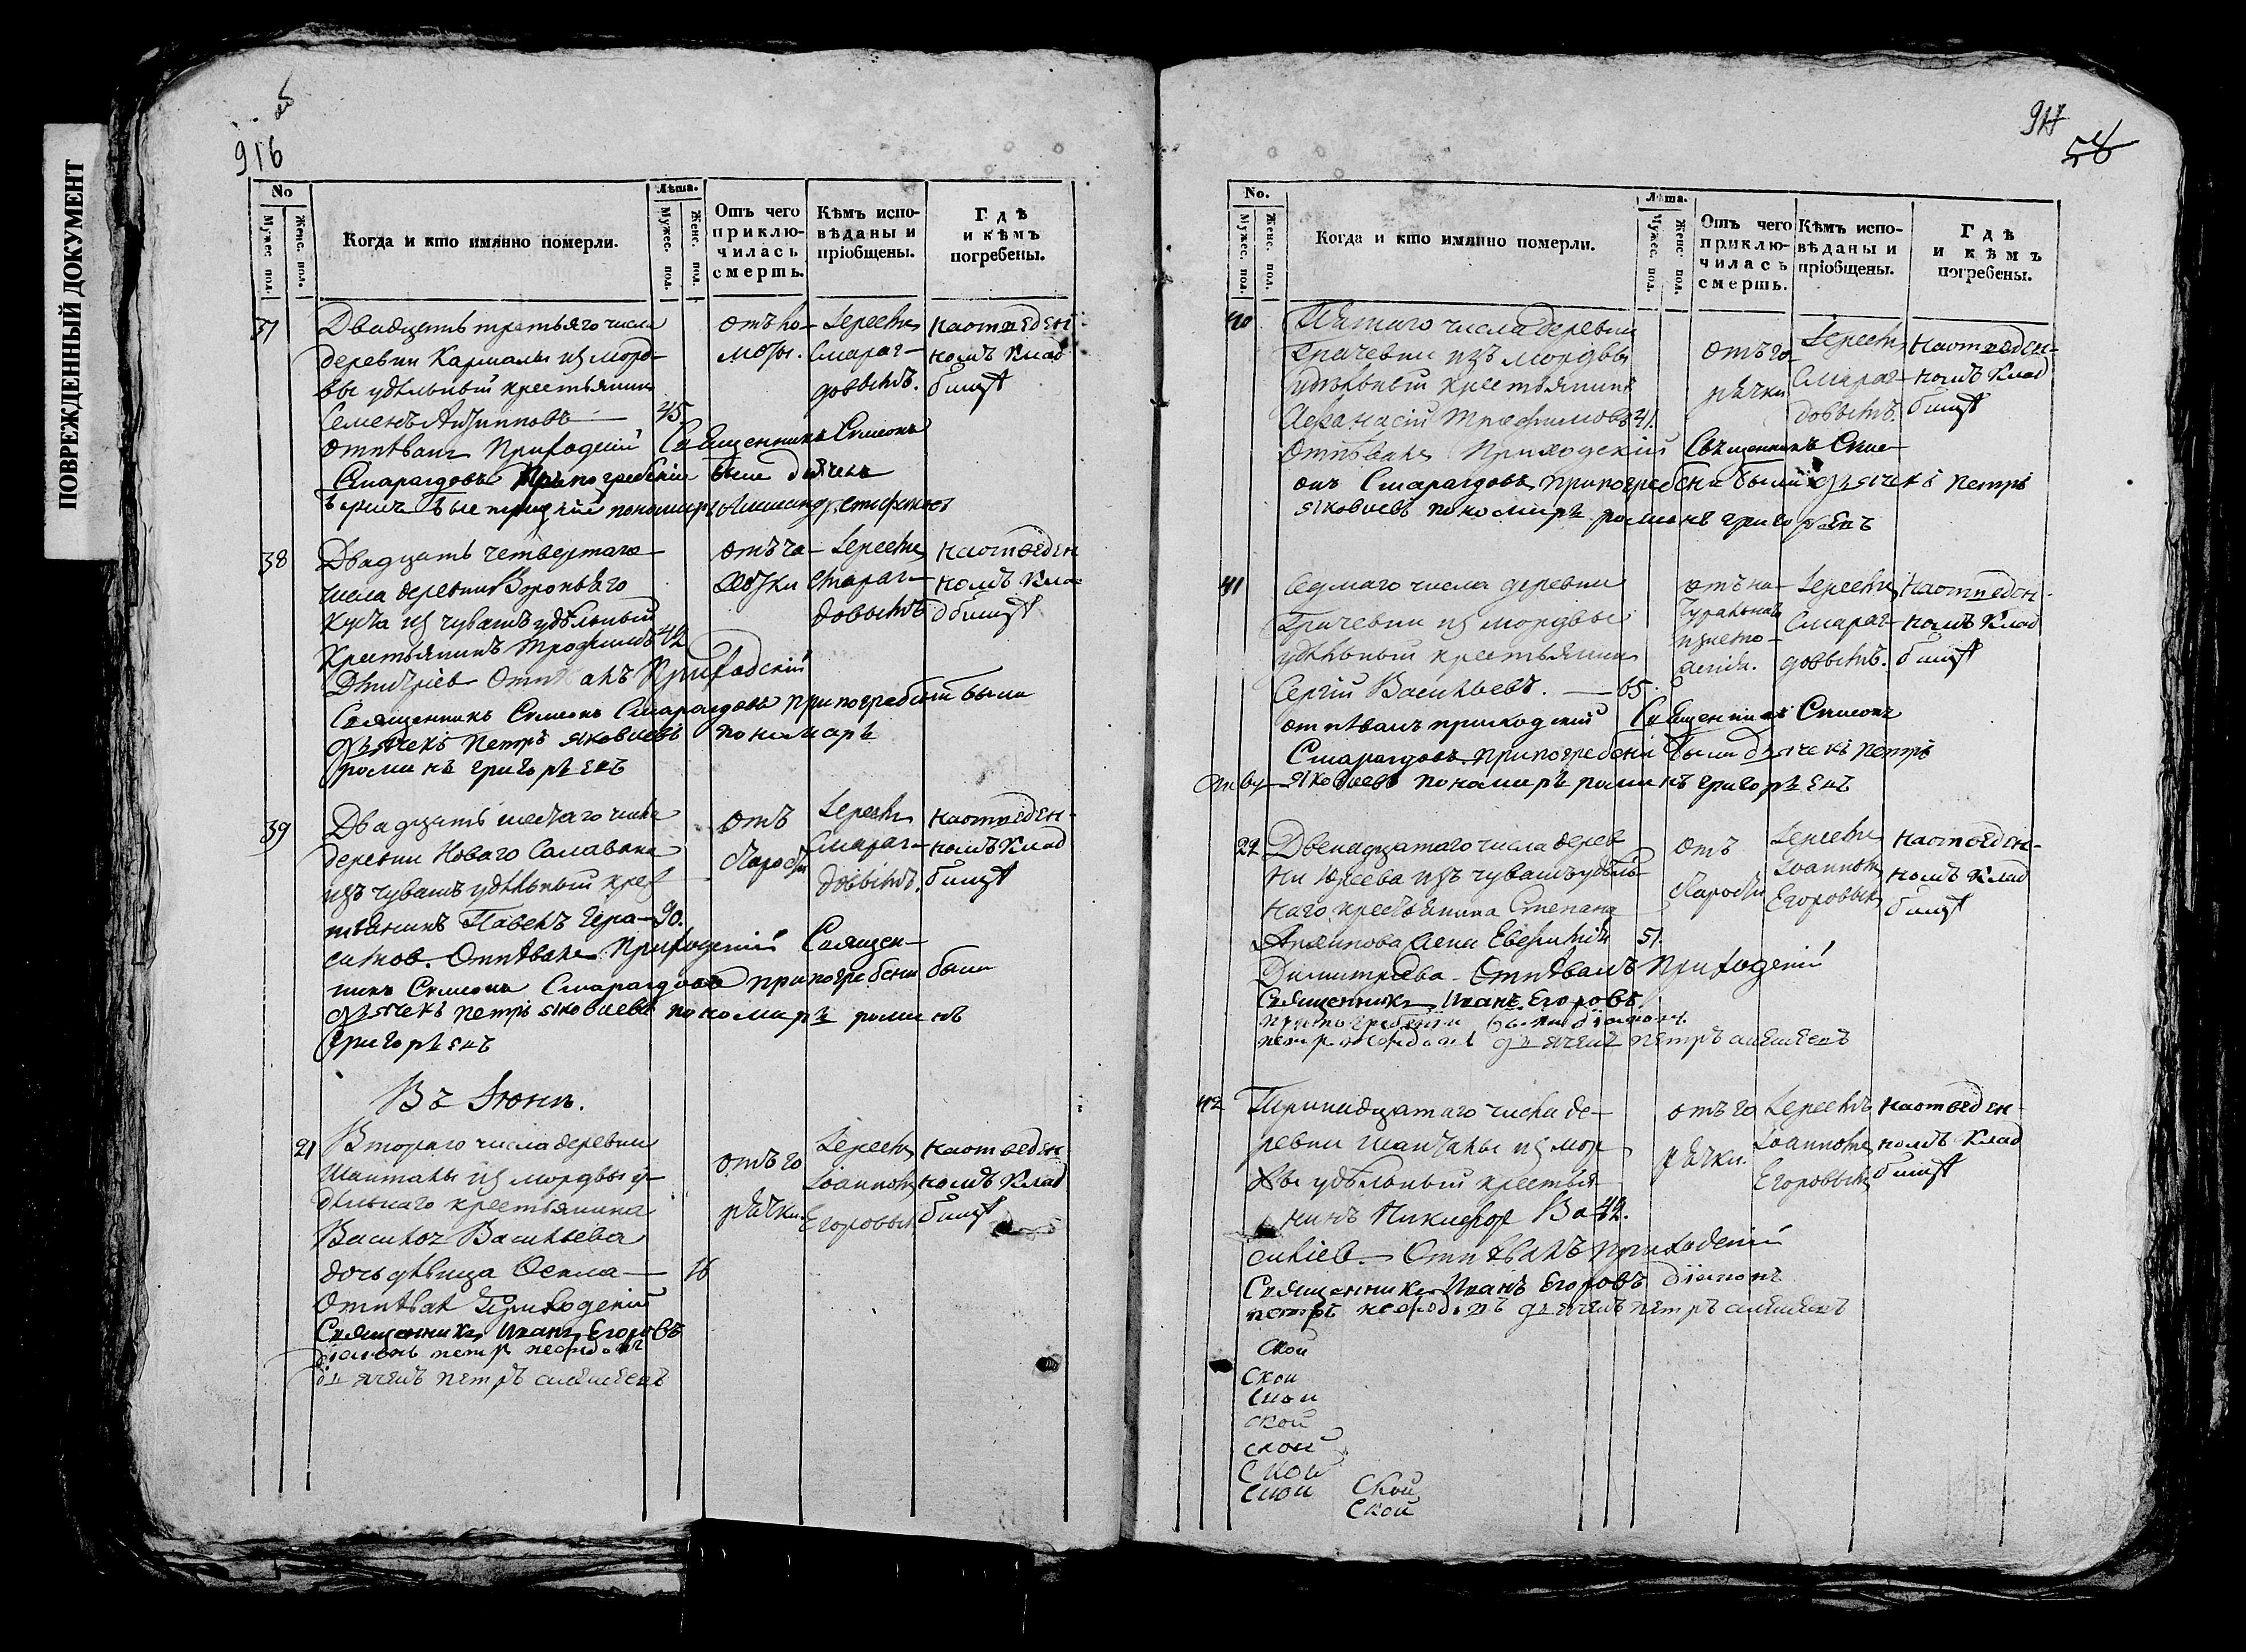 ПОВРЕЖДЕННЫЙ ДОКУМЕНТ
916
No
Мужес. пол.
Женс. пол.
Когда и кто имянно померли.
Лѣта.
Мужес. пол.
Женс. пол.
Отъ чего приклю-чилась смерть.
Кѣмъ испо-вѣданы и пріобщены.
Гдѣ и кѣмъ погребены.
37
Двадцать третьяго числа
деревни Кармалы из мордвы
удѣльный крестьянинъ
Семенъ
45
Іереемъ Смараг-довымъ.
на отведен-номъ клад-бищѣ
отпѣванъ Приходскій Священникъ Симеонъ
Смарагдовъ При погребеніи были дьячекъ
38
Двадцать четвертаго
числа деревни Вороньяго
Куста из чувашъ удѣльный
Крестьянинъ Трофимъ 42
Дмитріев Приходскій
Священникъ Симеонъ Смарагдовъ при погребеніи были
дьячекъ петръ яковлевъ пономарь
романъ григорьевъ
отъ ча-хотки
Іереемъ Смараг-довымъ
на отведен-номъ кла-дбищѣ
39
Двадцать шестаго числа
деревни Новаго Салавана
изъ чувашъ удѣльный крес-
тьянинъ Павелъ Гера- 90.
симов. Отпѣванъ Приходскій Священ-
никъ Симеонъ Смарагдовъ при погребеніи были
дьячекъ петръ яковлевъ пономарь романъ
григорьевъ
отъ старости
Іереемъ Смараг-довымъ.
на отведен-номъ клад-бищѣ
Въ Іюнѣ.
21
Втораго числа деревни
Шанталы из мордвы у-
дѣльнаго крестьянина
Васильева
дочь дѣвица 16
Отпѣвалъ Приходскій
Священникъ Иванъ Егоровъ
діаконъ петр
дьячекъ петръ алексеевъ
отъ го-рячки.
Іереемъ Іоанномъ Егоровымъ
на отведен-номъ клад-бищѣ
917
58
No.
Мужес. пол.
Женс. пол.
Когда и кто имянно померли.
Лѣта.
Мужес. пол.
Женс. пол.
Отъ чего приклю-чилась смерть.
Кѣмъ испо-вѣданы и пріобщены.
Гдѣ и кѣмъ погребены.
40
числа деревни
Грачевки изъ мордвы
удѣльный крестьянинъ
Афанасій Трофимовъ 41.
Отпѣвалъ Приходскій Священникъ Симе-
онъ Смарагдовъ при погребеніи были дьячекъ петръ
яковлевъ пономарь романъ григорьевъ
отъ го-рячки
Іереемъ Смараг-довымъ.
на отведен-номъ клад-бищѣ
41
Седмаго числа деревни
Грачевки из мордвы
удѣльный крестьянинъ
Сергій Васильевъ. 65.
отпѣвалъ приходскій Священникъ Симеонъ
Смарагдовъ при погребеніи были дьячекъ петръ
яковлевъ пономарь романъ григорьевъ
Іереемъ Смараг-довымъ.
на отведен-номъ клад-бищѣ
22
Двенадцатаго числа дерев
ни изъ чувашъ удѣль-
наго крестьянина Степана
жена 51.
Димитріева Отпѣвалъ Приходскій
Священникъ Иванъ Егоровъ.
при погребеніи были діаконъ
дьячекъ петръ алексеевъ
отъ старости
Іереемъ Іоанномъ Егоровымъ
на отведен-номъ клад-бищѣ
42
Тринадцатаго числа де-
ревни Шанталы из мор
двы удѣльный крестья
нинъ Никифор Ва- 42.
силіев. Отпѣвалъ приходскій
Священникъ Иванъ Егоровъ діаконъ
петръ дьячекъ петръ алексеевъ
отъ го рячки.
Іереемъ Іоанномъ Егоровымъ
на отведен-номъ клад бищѣ
Скои
Скои
Скои
скои
скои
Скои
Скои Скои
Скои